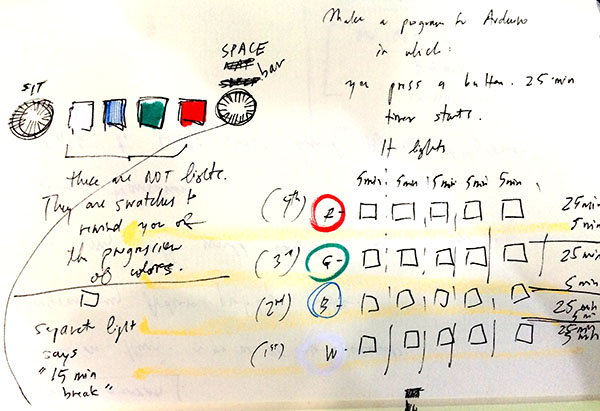 Make a program for Arduino
in which:
you press a button. 25 min
timer starts.
It lights
SPACE
bar
SIT
these are NOT lights.
They are swatches to
remind you of
the progression
of colors.
separate light
says
"15 min
break"
5min 5min 5min 5min 5min
(4th) R- 25min
5min
(3rd) G- 25min
5min
(2nd) B- 25min
5min
(1st) W- 25min
5min